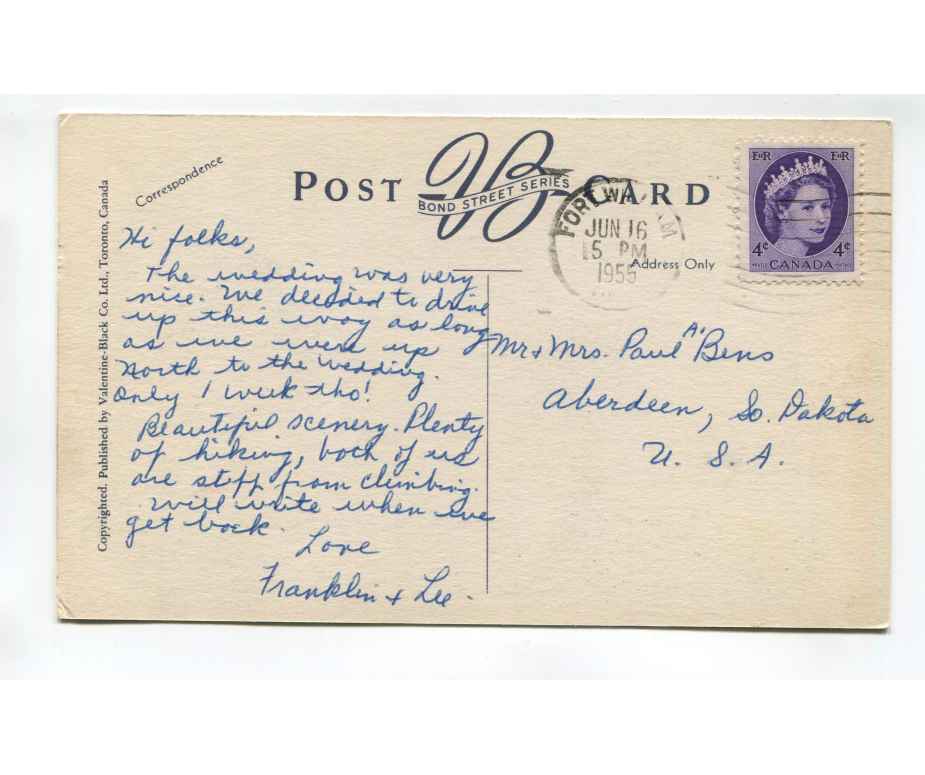 Correspondence
POST CARD
VB
BOND STREET SERIES
FORT WILLIAM
JUN 16
15 PM
1955
Address Only
E II R E II R
4¢ 4¢
CANADA
Copyrighted. Published by Valentine-Black Co. Ltd., Toronto, Canada
Hi folks,
The wedding was very
nice. We decided to drive
up this way as long
as we were up
North to the wedding.
Only 1 week tho!
Beautiful scenery. Plenty
of hiking, both of us
are stiff from climbing.
Will write when we
get back.
Love
Franklin + Lee.
Mr + Mrs. Paul A. Bens
Aberdeen, So. Dakota
U. S. A.